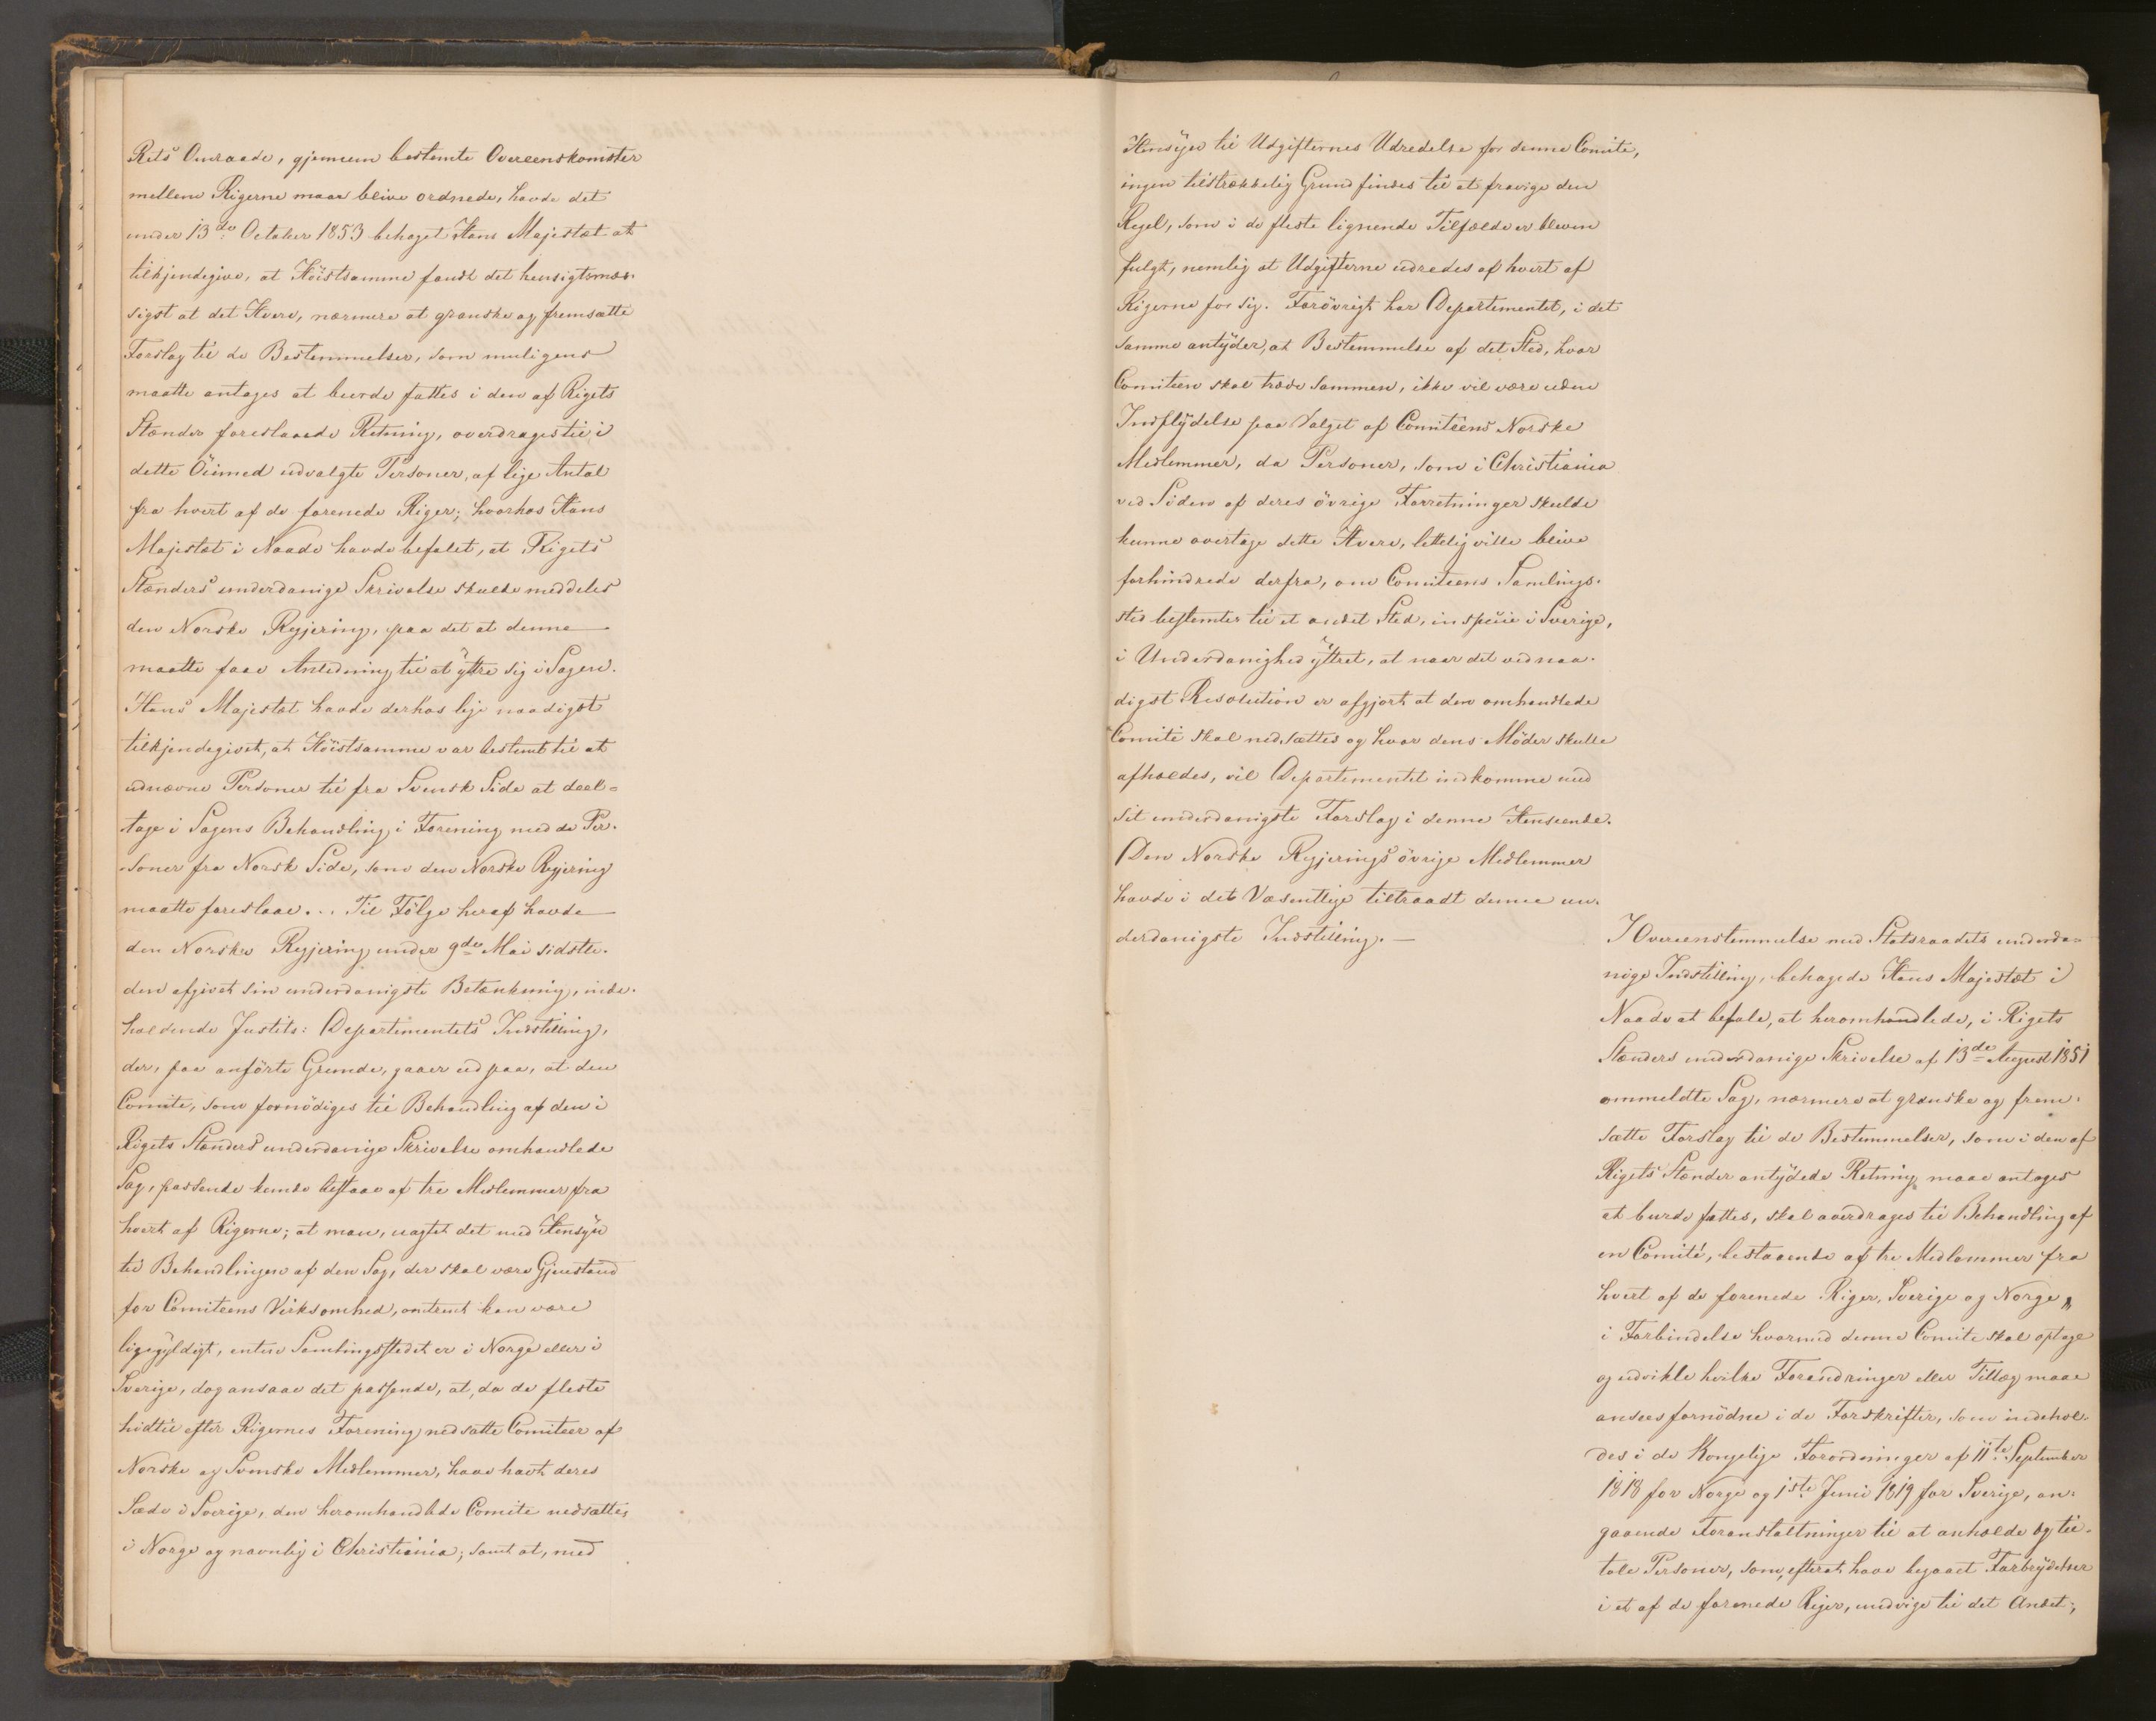 Rets Omraade, gjennem bestemte Overeenskomster
mellem Rigerne maae blive ordnede, havde det
under 13de October 1853 behaget Hans Majestæt at
tilkjendegive, at Höistsamme fandt det hensigtsmæs-
sigst at det Hverv, nærmere at granske og fremsætte
Forslag til de Bestemmelser, som muligens
maatte antages at burde fattes i den af Rigets
Stænder foreslaaede Retning, overdrages til i
dette Öiemed udvalgte Personer, af lige Antal
fra hvert af de forenede Riger; hvorhos Hans
Majestæt i Naade havde befalet, at Rigets
Stænders underdanige Skrivelse skulde meddeles
den Norske Regjering, paa det at denne
maatte faae Anledning til at ÿttre sig i Sagen.
Hans Majestæt havde derhos lige naadigst
tilkjendegivet, at Höistsamme var bestemt til at
udnævne Personer til fra Svensk Side at deel-
tage i Sagens Behandling i Forening med de Per-
soner fra Norsk Side, som den Norske Regjering
maatte foreslaae... Til Fölge heraf havde
den Norske Regjering under 9de Mai sidstle-
den afgivet sin underdanigste Betænkning, inde-
holdende Justits: Departementets Indstilling,
der, paa anförte Grunde, gaaer ud paa, at den
Comite, som fornödiges til Behandling af den i
Rigets Stænders underdanige Skrivelse omhandlede
Sag, passende kunde bestaae af tre Medlemmer fra
hvert af Rigerne; at man, uagtet det med Hensÿn
til Behandlingen af den Sag, der skal være Gjenstand
for Comiteens Virksomhed, omtrent kan være
ligegÿldigt, enten Samlingsstedet er i Norge eller i
Sverige, dog ansaae det passende, at, da de fleste
hidtil efter Rigernes Forening nedsatte Comiteer af
Norske og Svenske Medlemmer, have havt deres
Sæde i Sverige, den heromhandlede Comite nedsættes
i Norge og navnlig i Christiania; samt at, med
Hensÿn til Udgifternes Udredelse for denne Comite,
ingen tilstrækkelig Grund findes til at fravige den
Regel, som i de fleste lignende Tilfælde er bleven
fulgt, nemlig at Udgifterne udredes af hvert af
Rigerne for sig. Forövrigt har Departementet, i det
samme antÿder, at Bestemmelse af det Sted, hvor
Comiteen skal træde sammen, ikke vil være uden
Indflÿdelse paa Valget af Comitéens Norske
Medlemmer, da Personer, som i Christiania
ved Siden af deres övrige Forretninger skulde
kunne overtage dette Hverv, lettelig ville blive
forhindrede derfra, om Comiteens Samlings-
sted bestemtes til et andet Sted, in specie i Sverige,
i Underdanighed ÿttret, at naar det ved naa-
digst Resolution er afgjort at den omhandlede
Comité skal nedsættes og hvor dens Möder skulle
afholdes, vil Departementet indkomme med
sit underdanigste Forslag i denne Henseende.
Den Norske Regjerings övrige Medlemmer
havde i det Væsentlige tiltraadt denne un-
derdanigste Indstilling. —
I Overeenstemmelse med Statsraadets underda-
nige Indstilling, behagede Hans Majestæt i
Naade at befale, at heromhandlede, i Rigets
Stænders underdanige Skrivelse af 13de August 1851
ommeldte Sag, nærmere at granske og frem-
sætte Forslag til de Bestemmelser, som i den af
Rigets Stænder antÿdede Retning maae antages
at burde fattes, skal overdrages til Behandling af
en Comité, bestaaende af tre Medlemmer fra
hvert af de forenede Riger, Sverige og Norge,
i Forbindelse hvormed denne Comite skal optage
og udvikle hvilke Forandringer eller Tillæg maae
ansees fornödne i de Forskrifter, som indehol-
des i de Kongelige Forordninger af 11te September
1818 for Norge og 1ste Juni 1819 for Sverige, an-
gaaende Foranstaltninger til at anholde og til-
tale Personer, som, efterat have begaaet Forbrÿdelser
i et af de forenede Riger, undvige til det Andet;